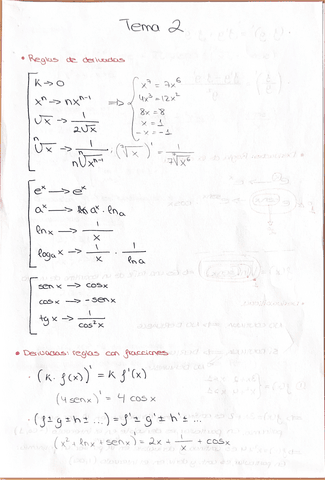 Tema 2
• Reglas de derivadas
K → 0
xⁿ → nxⁿ⁻¹ ⇒ x⁷ = 7x⁶
4x³ = 12x²
8x = 8
x = 1
-x = -1
√x → 1/(2√x)
ⁿ√x → 1/(n ⁿ√xⁿ⁻¹) · (⁷√x)' = 1/(7 ⁷√x⁶)
eˣ → eˣ
aˣ → aˣ · ln a
ln x → 1/x
logₐx → 1/x · 1/ln a
sen x → cos x
cos x → -sen x
tg x → 1/cos²x
• Derivadas: reglas con fracciones
· (K · f(x))' = K f'(x)
(4 sen x)' = 4 cos x
· (f ± g ± h ± ...)' = f' ± g' ± h' ± ...
(x² + ln x + sen x)' = 2x + 1/x + cos x